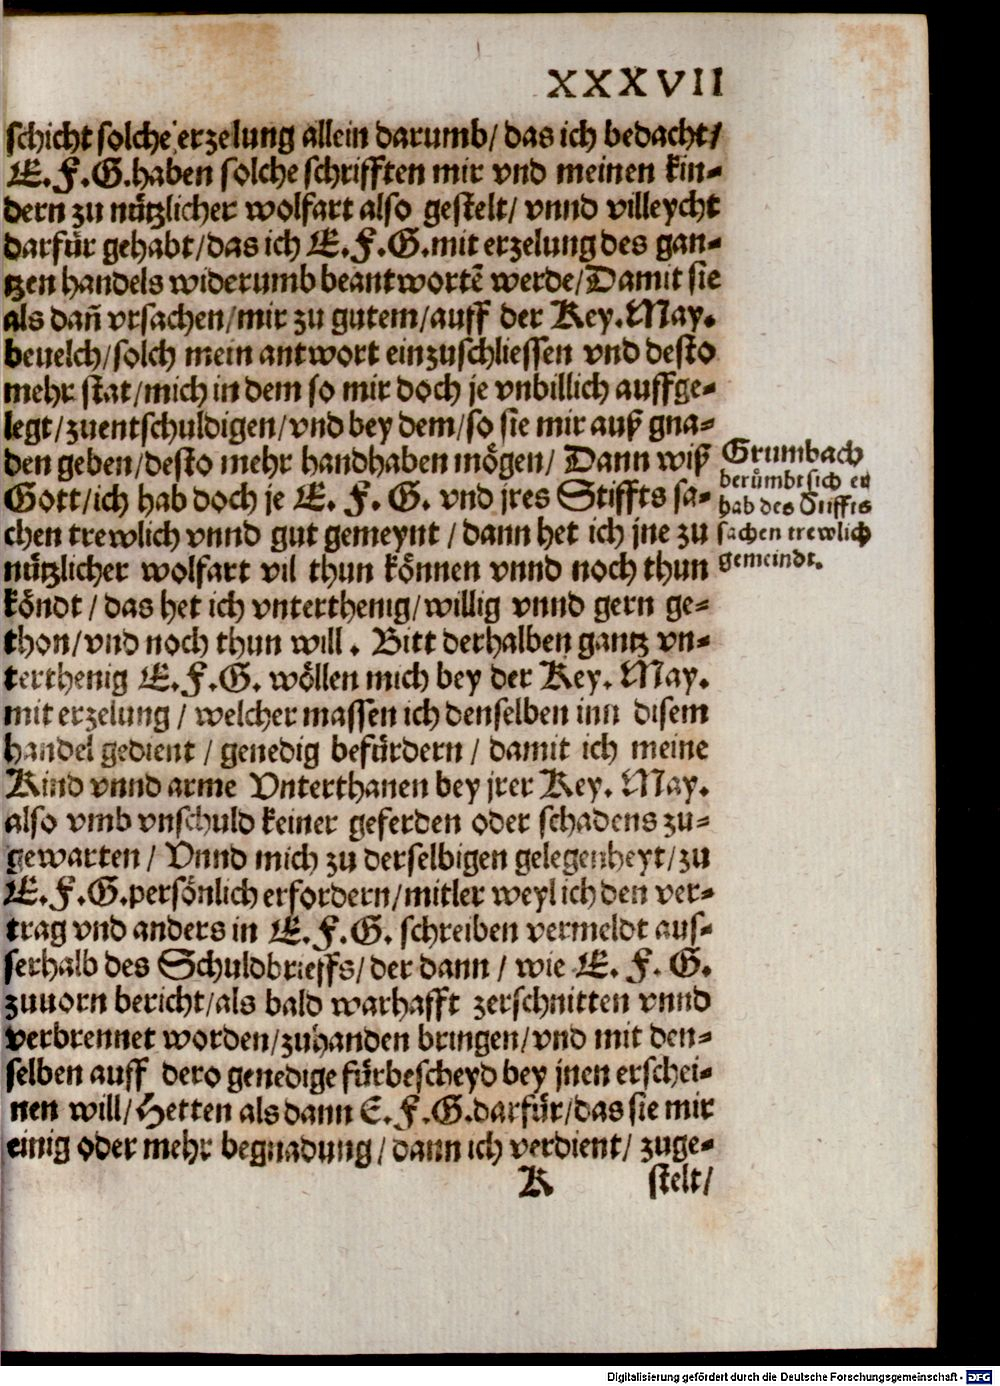 XXXVII
schicht solche erzelung allein darumb/ das ich bedacht/
E. F. G. haben solche schrifften mir vnd meinen kin-
dern zu nützlicher wolfart also gestelt/ vnnd villeycht
darfür gehabt/ das ich E. F. G. mit erzelung des gan-
tzen handels widerumb beantwortē werde/ Damit sie
als dañ vrsachen/ mir zu gutem/ auff der Key. May.
beuelch/ solch mein antwort einzuschliessen vnd desto
mehr stat/ mich in dem so mir doch je vnbillich auffge-
legt/ zuentschuldigen/ vnd bey dem/ so sie mir auß gna-
den geben/ desto mehr handhaben mögen/ Dann wiß
Gott/ ich hab doch je E. F. G. vnd jres Stiffts sa-
chen trewlich vnnd gut gemeynt / dann het ich jne zu
nützlicher wolfart vil thun können vnnd noch thun
köndt / das het ich vnterthenig/ willig vnnd gern ge-
thon/ vnd noch thun will. Bitt derhalben gantz vn-
terthenig E. F. G. wöllen mich bey der Key. May.
mit erzelung / welcher massen ich denselben inn disem
handel gedient / genedig befürdern / damit ich meine
Kind vnnd arme Vnterthanen bey jrer Key. May.
also vmb vnschuld keiner geferden oder schadens zu-
gewarten / Vnnd mich zu derselbigen gelegenheyt/ zu
E. F. G. persönlich erfordern/ mitler weyl ich den ver-
trag vnd anders in E. F. G. schreiben vermeldt aus-
serhalb des Schuldbrieffs/ der dann / wie E. F. G.
zuuorn bericht/ als bald warhafft zerschnitten vnnd
verbrennet worden/ zuhanden bringen/ vnd mit den-
selben auff dero genedige fürbescheyd bey jnen erschei-
nen will/ Hetten als dann E. F. G. darfür/ das sie mir
einig oder mehr begnadung / dann ich verdient/ zuge-
K stelt/
Grumbach
berümbt sich er
hab des Stiffts
sachen trewlich
gemeindt.
Digitalisierung gefördert durch die Deutsche Forschungsgemeinschaft - DFG